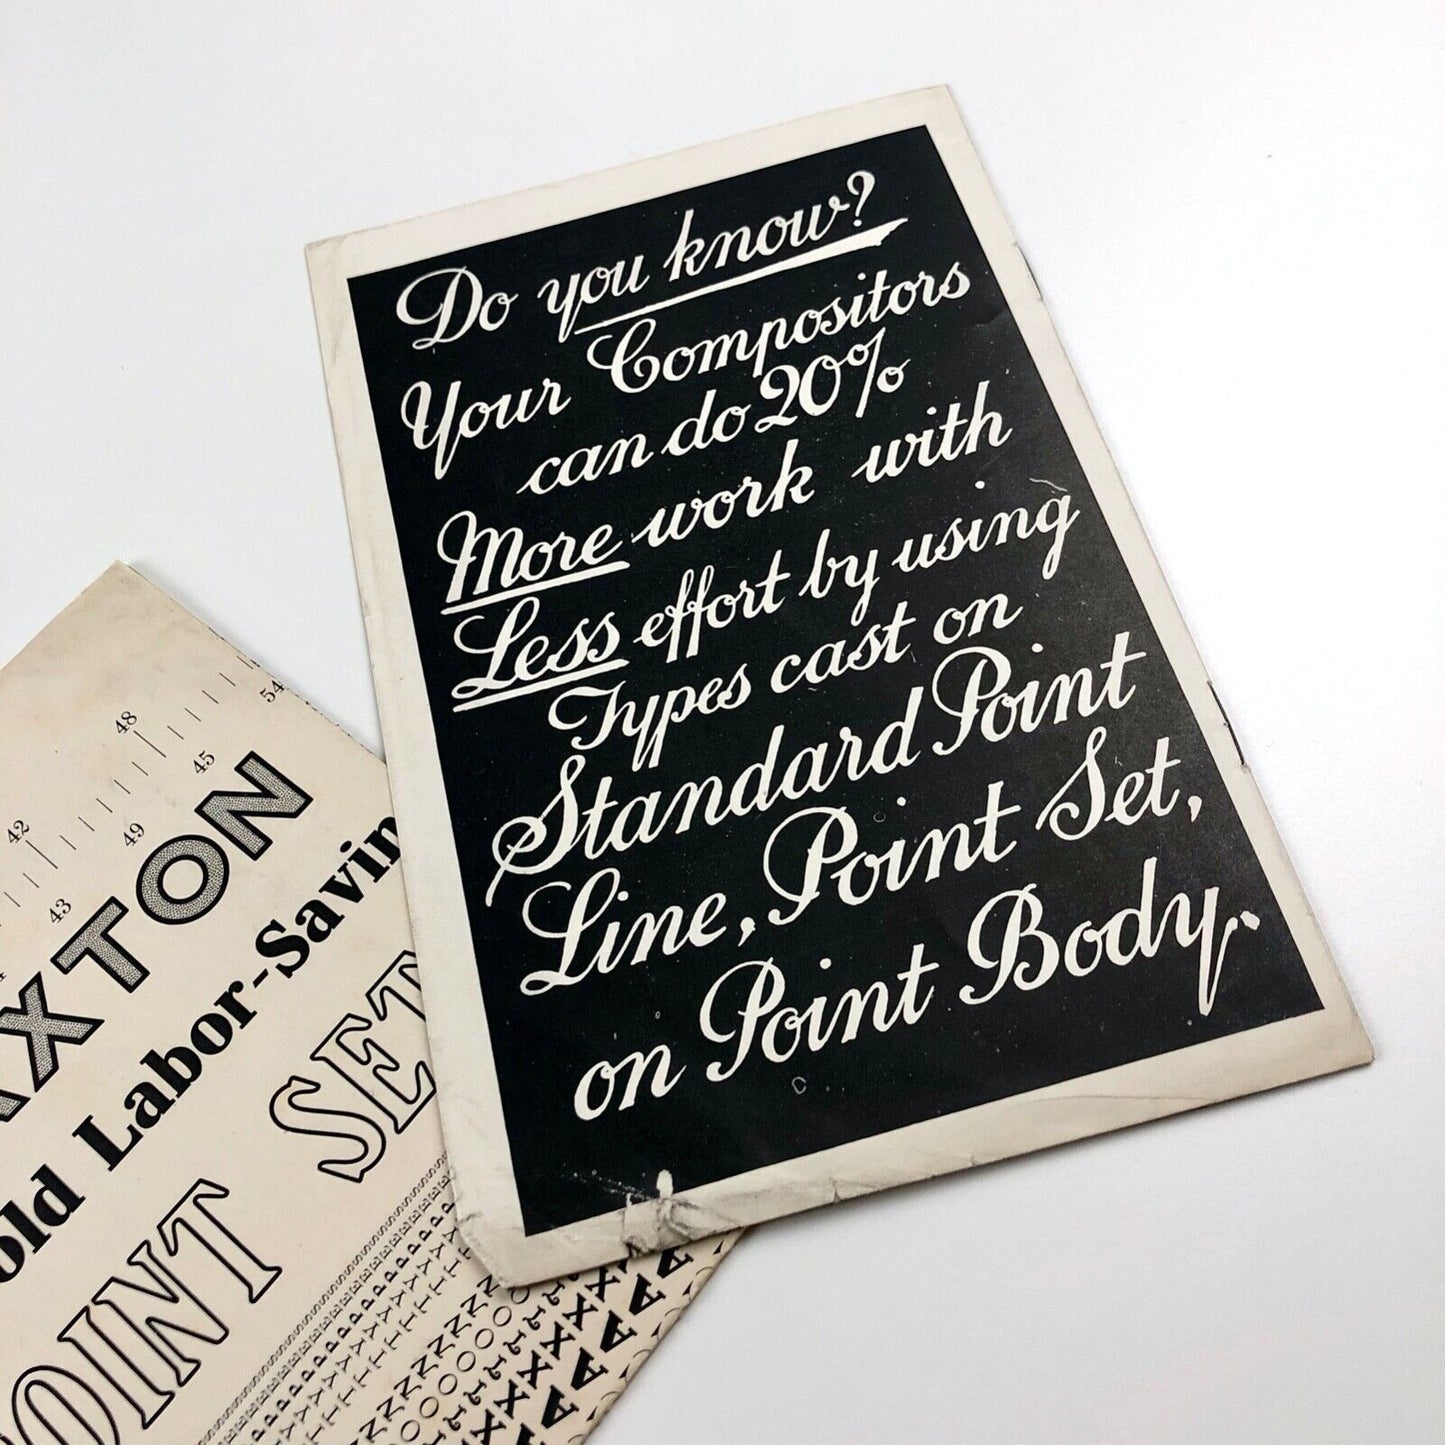 Do you know?
Your Compositors
can do 20%
More work with
Less effort by using
Types cast on
Standard Point
Line, Point Set,
on Point Body.
48
54
45
42
49
43
AXTON
old Labor-Savin
POINT SET